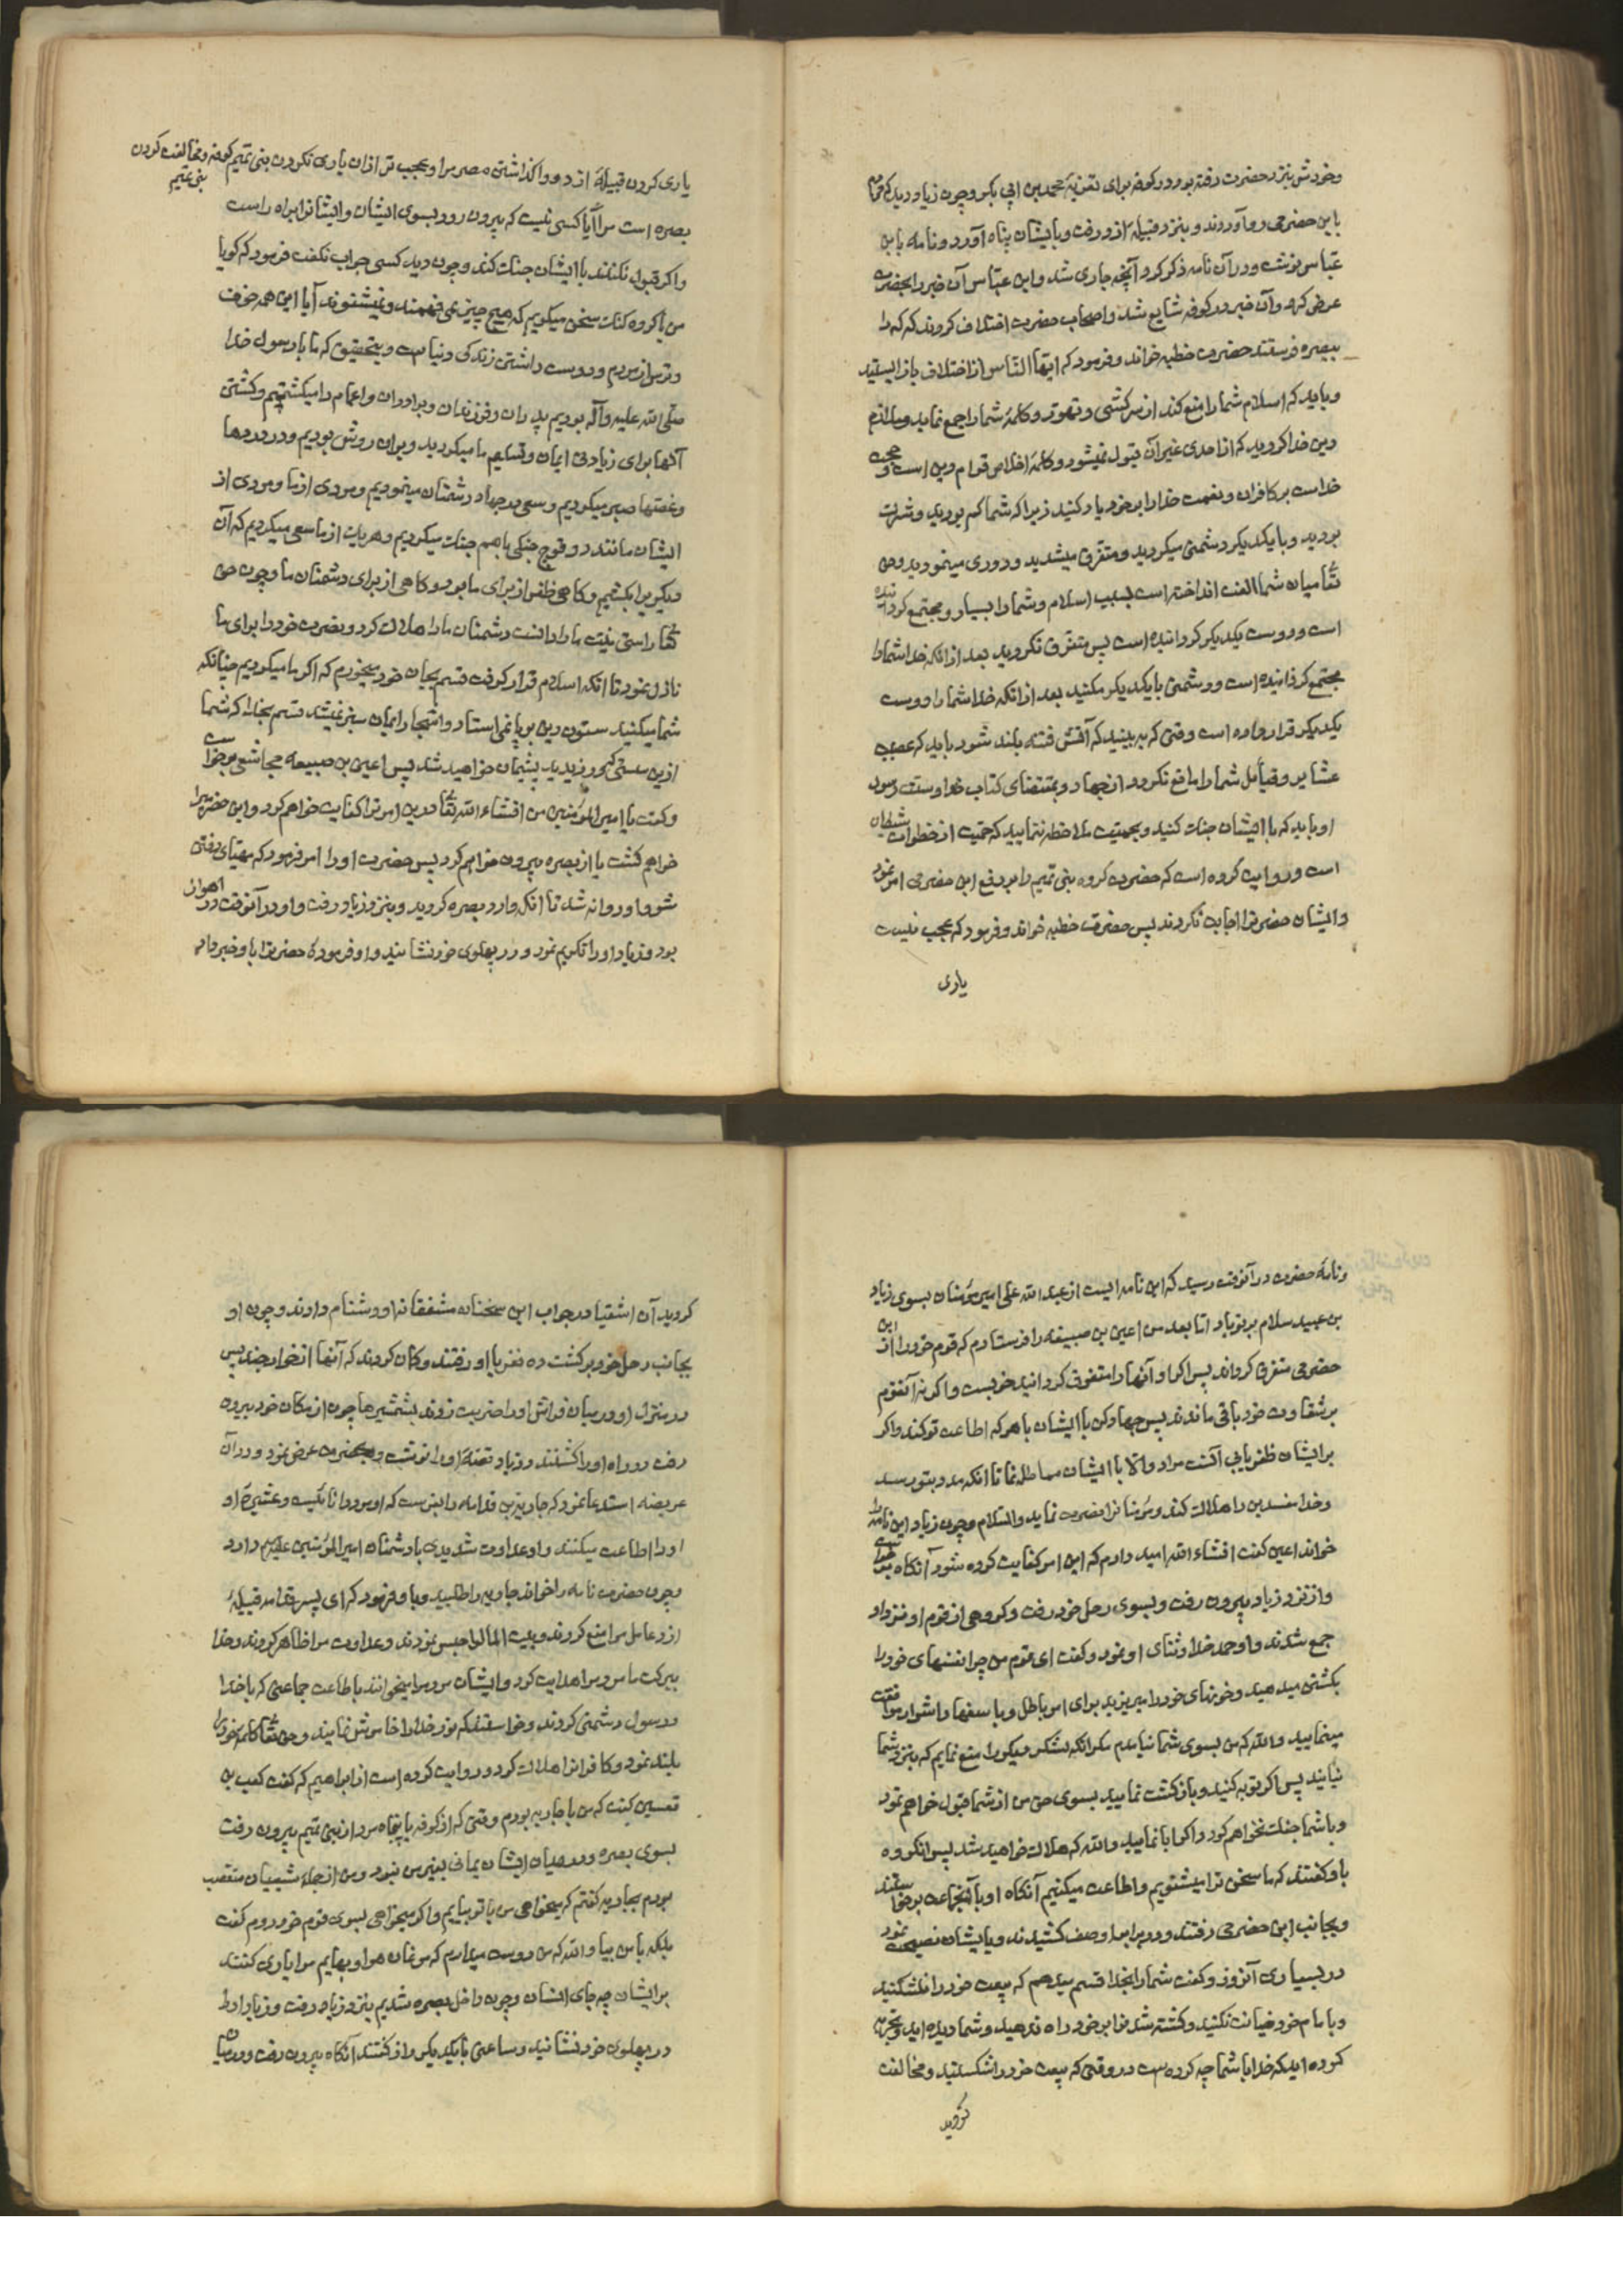 وخودش بنزد حضرت رفته بود در کوفه برای تعزیهٔ محمد بن ابی بکر وچون زیاد دید که مردم
بابن حضرمی رو آوردند و بنزد قبیلهٔ ازد رفت و بایشان پناه آورد و نامه بابن
عباس نوشت و در آن نامه ذکر کرد آنچه جاری شد و ابن عباس آن خبر را بحضرت
عرض کرد و آن خبر در کوفه شایع شد و اصحاب حضرت اختلاف کردند که که را
ببصره فرستند حضرت خطبه خواند و فرمود که ایها الناس از اختلاف باز ایستید
و باید که اسلام شما را منع کند از سرکشی و تهور و کلمهٔ شما را جمع نماید و ملازم
دین خدا کردید که از احدی غیر آن قبول نمیشود و کلمهٔ اخلاص قوام دین است و حجت
خداست بر کافران و نعمت خدا را بر خود یاد کنید زیرا که شما کم بودید و متفرق
بودید و با یکدیگر دشمنی میکردید و متفرق میشدید و دوری مینمودید وحق
تعا میان شما الفت انداخته است بسبب اسلام و شما را بسیار و مجتمع کردانیده
است و دوست یکدیگر کردانیده است پس متفرق نکردید بعد از انکه خدا شما را
مجتمع کردانیده است و دشمنی با یکدیگر مکنید بعد از انکه خدا شما را دوست
یکدیگر قرار داده است وقتی که به بینید که آتش فتنه بلند شود باید که تعصب
عشایر و قبایل شما را مانع نکردد از جهاد و بمقتضای کتاب خدا و سنت رسول
او باید که با ایشان جنک کنید و بحمیت ملاحظه ننمایید که حمیت از خطوات شیطان
است و روایت کرده است که حضرت کروه بنی تمیم را بر دفع ابن حضرمی امر نمود
و ایشان حضرترا اجابت نکردند پس حضرت خطبه خواند و فرمود که عجب نیست
یاری
یاری کردن قبیلهٔ ازد و واکذاشتن مضر مرا و عجب تر از ان یاری نکردن بنی تمیم کوفه و مخالفت کردن
بنی تمیم
بصره است مرا آیا کسی نیست که بیرون رود بسوی ایشان و ایشانرا براه راست
واکر قبول نکنند با ایشان جنک کند و چون دید کسی جواب نکفت فرمود که کویا
من با کروه کنک سخن میکویم که هیچ چیز نمی فهمند و نمیشنوند آیا این همه خوف
و ترس از مردم و دوست داشتن زندکی دنیاست و بتحقیق که ما با رسول خدا
صلی الله علیه و آله بودیم پدران و فرزندان و برادران و اعمام را میکشتیم و کشتن
آنها برای زیادتی ایمان و تسلیم ما میکردید و بر ان روش بودیم و در دردها
و غصها صبر میکردیم و سعی در جهاد دشمنان مینمودیم و مردی از ما و مردی از
ایشان مانند دو قوچ جنکی با هم جنک میکردیم و هر یک از ما سعی میکردیم که آن
دیگریرا بکشیم و کاهی ظفر از برای ما بود و کاهی از برای دشمنان ما و چون حق
تعا راستی نیت ما را دانست دشمنان ما را هلاک کرد و نصرت خود را برای ما
نازل نمود تا انکه اسلام قرار کرفت قسم بجان خود میخورم که اکر ما میکردیم چنانکه
شما میکنید ستون دین بر پا نمی استاد و اشجار ایمان سبز نمیشد قسم بخدا که شما
ازین سستی که ورزیدید پشیمان خواهید شد پس اعین بن ضبیعه مجاشعی برخواست
و کفت یا امیر المؤمنین من انشاء الله تعا درین امر ترا کفایت خواهم کرد و ابن حضرمیرا
خواهم کشت یا از بصره بیرون خواهم کرد پس حضرت او را امر فرمود که مهیای رفتن
شود و او روانه شد تا انکه وارد بصره کردید و بنزد زیاد رفت و او در آنوقت در اهواز
بود و زیاد او را تکریم نمود و در پهلوی خود نشانید و او فرموده حضرترا باو خبر داد
و نامهٔ حضرت در آنوقت رسید که این نامه ایست از عبد الله علی امیر مؤمنان بسوی زیاد
بن عبید سلام بر تو باد اما بعد من اعین بن ضبیعه را فرستادم که قوم خود را از ابن
حضرمی متفرق کرداند پس اکر او آنها را متفرق کردانید خوبست و اکر نه آنقوم
بر شقاوت خود باقی ماندند پس جهاد کن با ایشان با هر که اطاعت تو کند و اکر
بر ایشان ظفر یابی آنست مراد و الا با ایشان مماطله نما تا انکه مدد بتو رسد
و خدا مفسدین را هلاک کند و مؤمنانرا نصرت نماید والسلام و چون زیاد این نامه را
خواند اعین کفت انشاء الله امید دارم که این امر کفایت کرده شود آنکاه برخواست
و از نزد زیاد بیرون رفت و بسوی رحل خود رفت و کروهی از قوم او نزد او
جمع شدند و او حمد خدا و ثنای او نمود و کفت ای قوم من چرا نفسهای خود را
بکشتن میدهید و خونهای خود را میریزید برای امر باطل و با سفها و اشرار موافقت
مینمایید والله که من بسوی شما نیامدم مکر انکه لشکر دیگر را منع نمایم که بنزد شما
نیایند پس اکر توبه کنید و باز کشت نمایید بسوی حق من از شما قبول خواهم نمود
و با شما جنک نخواهم کرد و اکر ابا نمایید والله که هلاک خواهید شد پس انکروه
باو کفتند که ما سخن ترا میشنویم و اطاعت میکنیم آنکاه او با آنجماعت برخواستند
و بجانب ابن حضرمی رفتند و در برابر او صف کشیدند و بایشان نصیحت نمود
در بسیاری آنروز و کفت شما را بخدا قسم میدهم که بیعت خود را مشکنید
و با امام خود خیانت نکنید و کشته شدنرا بر خود راه ندهید و شما دیده اید و تجربه
کرده اید که خدا با شما چه کرده است در وقتی که بیعت خود را شکستید و مخالفت
کردید
کردید آن اشقیا در جواب این سخنان مشفقانه او دشنام دادند و چون او
بجانب رحل خود برکشت ده نفر با او رفتند و کمان کردند که آنها از خوارجند پس
در منزل او در میان فراش او را ضربت زدند بشمشیرها چون از مکان خود بیرون
رفت در راه او را کشتند و زیاد قصهٔ او را نوشت و بحضرت عرض نمود و در آن
عریضه استدعا نمود که جاریة بن قدامه را بفرست که او مردانا کیست و عشیرهٔ او
او را اطاعت میکنند و او عداوت شدیدی با دشمنان امیر المؤمنین علیه السلم دارد
و چون حضرت نامه را خواند جاریه را طلبید و باو فرمود که ای پسر قدامه قبیلهٔ
ازد عامل مرا منع کردند و بیت المالرا حبس نمودند و عداوت مرا ظاهر کردند و خدا
ببرکت ما مردمرا هدایت کرد و ایشان مردمرا میخوانند باطاعت جماعتی که با خدا
و رسول دشمنی کردند و خواستند که نور خدا را خاموش نمایند و حق تعا کلمهٔ خود را
بلند نمود و کافرانرا هلاک کرد و روایت کرده است از ابراهیم که کفت کعب بن
قعین کفت که من با جاریه بودم وقتی که از کوفه با پنجاه مرد از بنی تمیم بیرون رفت
بسوی بصره و در میان ایشان یمانی بغیر من نبود و من از جملهٔ شیعیان متعصب
بودم بجاریه کفتم که میخواهی من با تو بیایم و اکر میخواهی بسوی قوم خود روم کفت
بلکه با من بیا والله که من دوست میدارم که مرغان هوا و بهایم مرا یاری کنند
بر ایشان چه جای انسان و چون داخل بصره شدیم بنزد زیاد رفت و زیاد او را
در پهلوی خود نشانید و ساعتی با یکدیگر راز کفتند آنکاه بیرون رفت و در میان